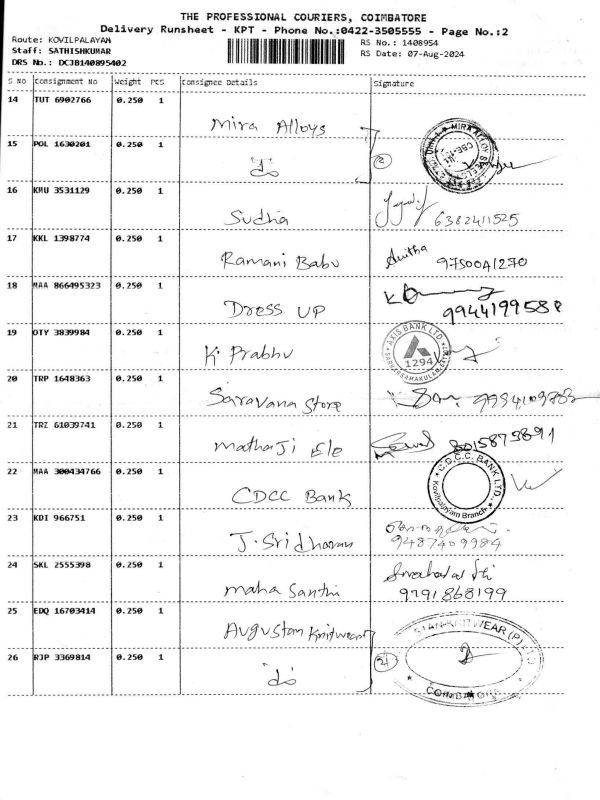 THE PROFESSIONAL COURIERS, COIMBATORE
Delivery Runsheet - KPT - Phone No.:0422-3505555 - Page No.:2
Route: KOVILPALAYAM
RS No.: 1408954
Staff: SATHISHKUMAR
RS Date: 07-Aug-2024
DRS No.: DCJB140895402
S No Consignment No Weight PCS Consignee Details Signature
14 TUT 6902766 0.250 1 Mira Alloys
15 POL 1630201 0.250 1 do 2
16 KMU 3531129 0.250 1 Sudha 6382411525
17 KKL 1398774 0.250 1 Ramani Babu Anitha 9750041270
18 MAA 866495323 0.250 1 Dress UP
19 OTY 3839984 0.250 1 K. Prabhu AXIS BANK LTD 1294
20 TRP 1648363 0.250 1 Saravana Store
21 TRZ 61039741 0.250 1 MathaJi Ele 8015875891
22 MAA 300434766 0.250 1 CDCC Bank C.D.C.C. BANK LTD Kovilpalayam Branch
23 KDI 966751 0.250 1 J. Sridharan 9487409984
24 SKL 2555398 0.250 1 maha Santhi 9791868199
25 EDQ 16703414 0.250 1 Augustan Knitwear
26 RJP 3369814 0.250 1 do 2 KNITWEAR (P) LTD COIMBATORE